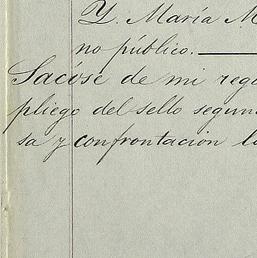 Y. María M
no público.
Sacóse de mi reg
pliego del sello segun
sa y confrontacion l